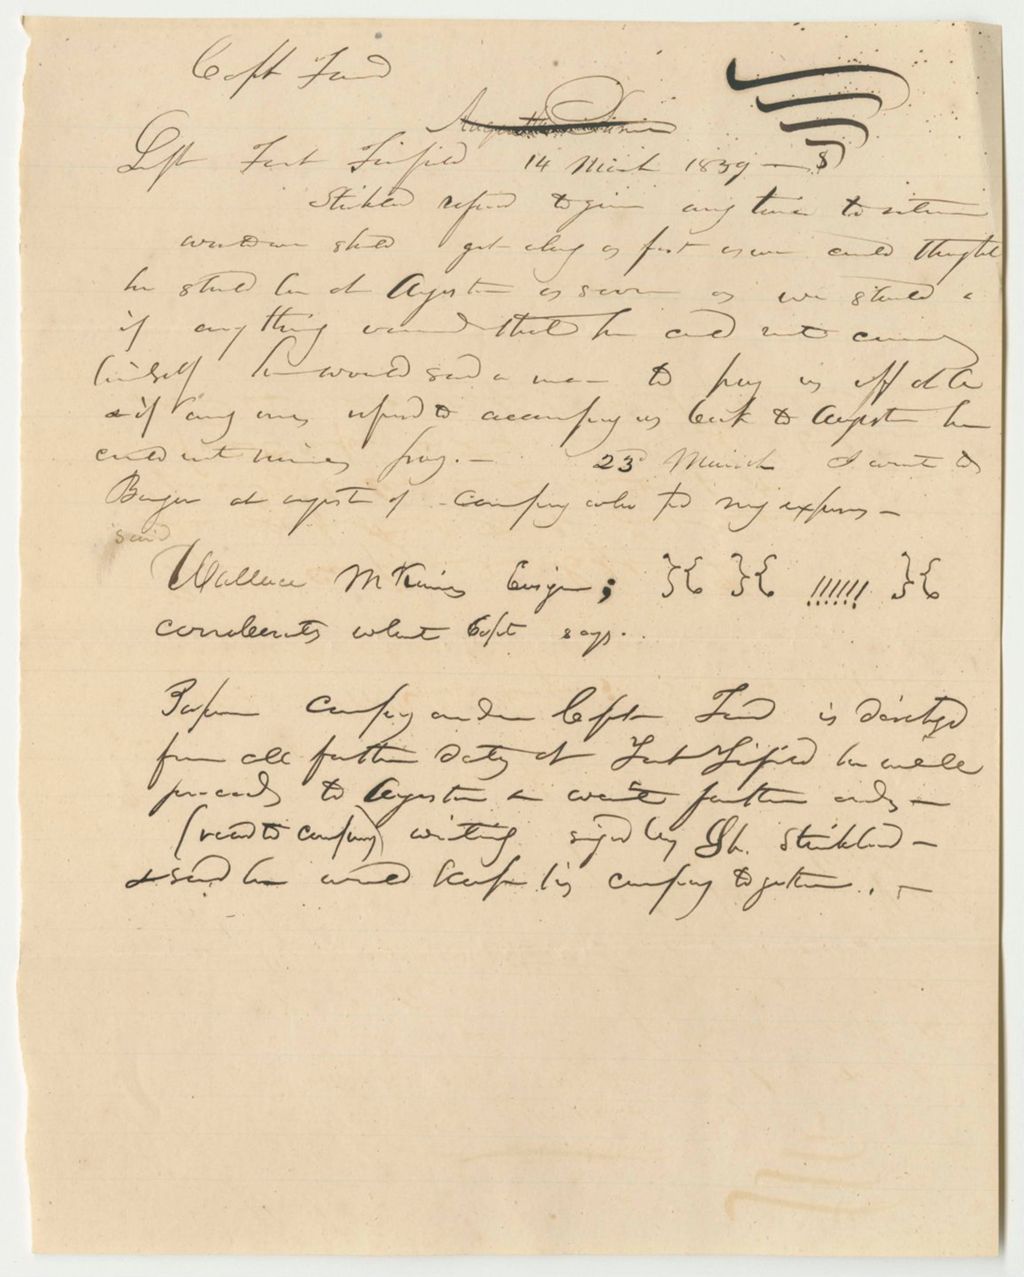 Capt Ford
Left Fort Fairfield 14 March 1839 —
Strickland refused to give any time to return
should get along as fast as we could thought
he should be at Augusta as soon as we should &
if any thing that he could not come
himself he would send a man to pay us off at
& if any man refused to accompany us back to Augusta he
could not receive pay. — 23d March I went to
Bangor at request of company who pd my expenses —
said
Wallace McKinney Ensign; }{ }{ !!!!!! }{
corroborates what Capt says.
company under Capt Ford is discharged
from all further duty at Fort Fairfield he will
proceed to Augusta & await further orders —
(read to company) writing signed by Strickland —
& said he would keep his company together. —